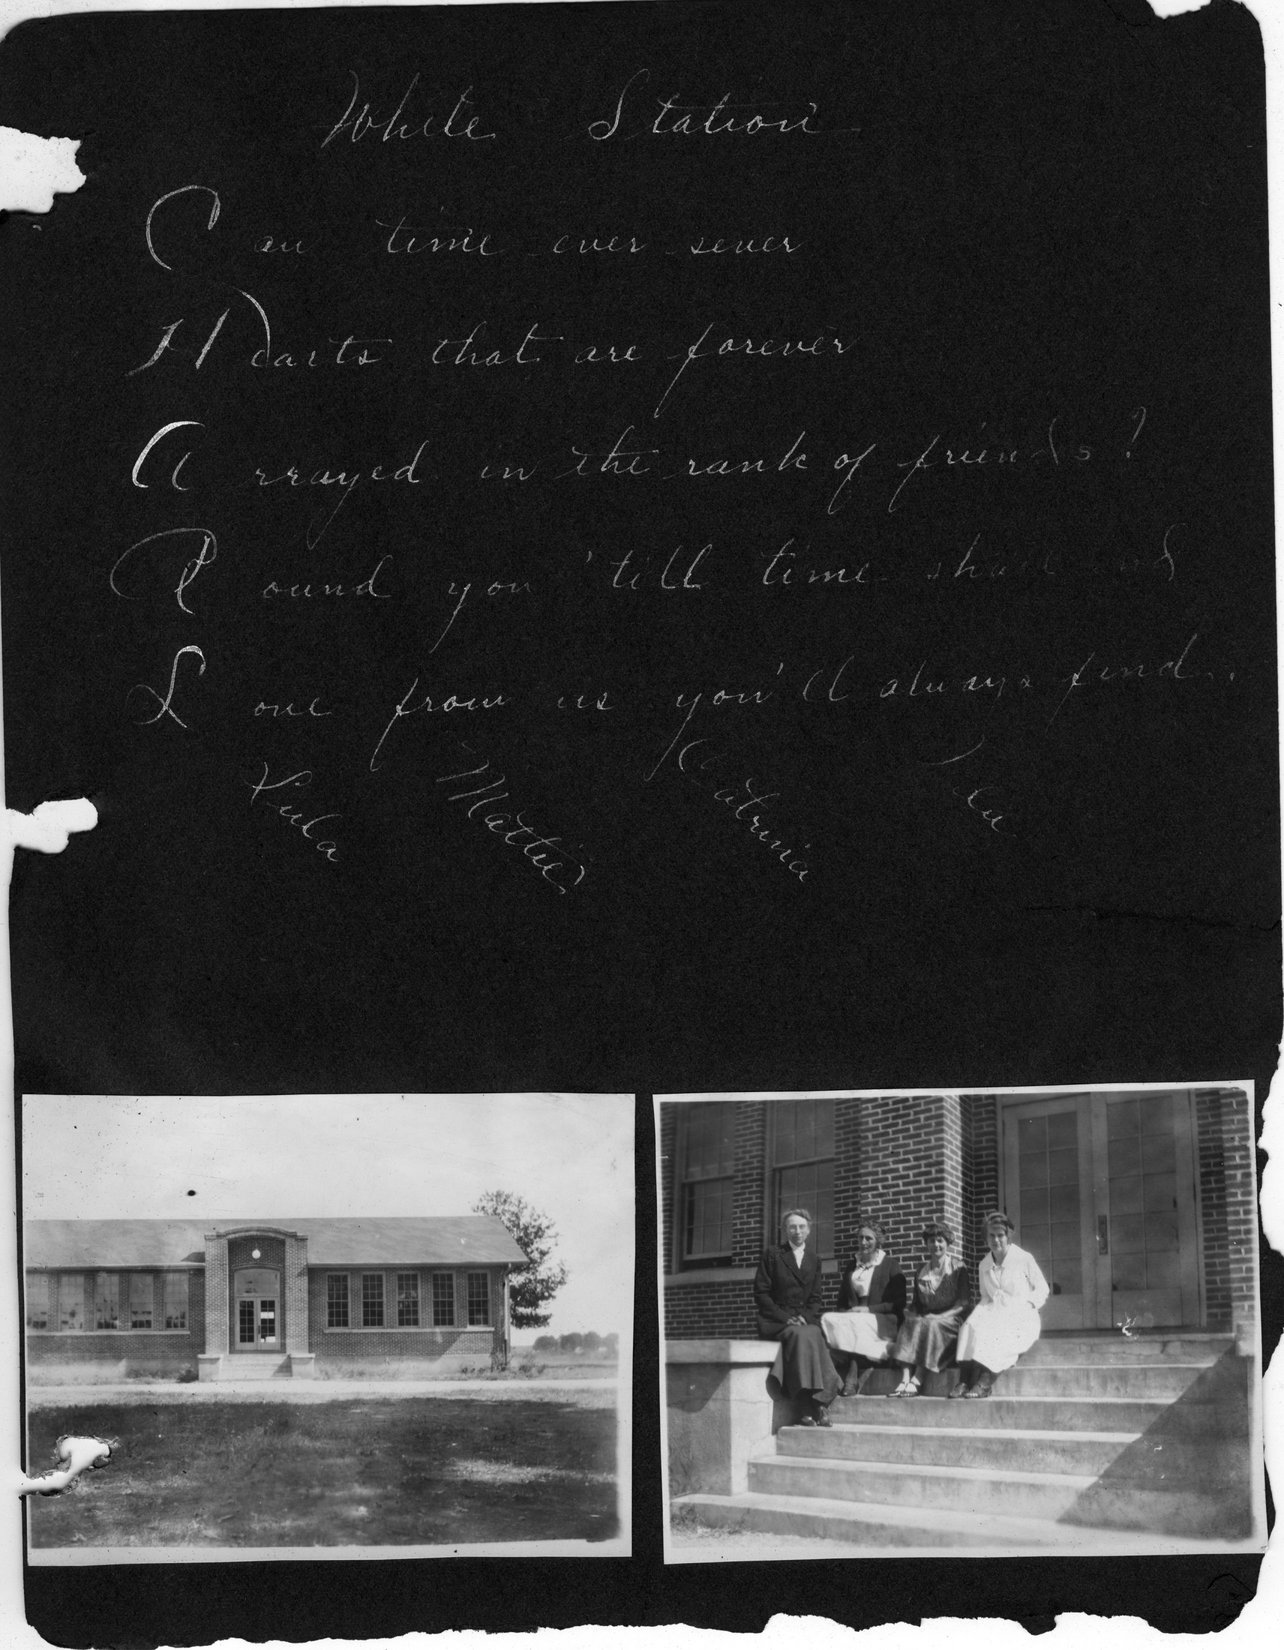 White Station
Can time ever sever
Hearts that are forever
Arrayed in the rank of friends?
Round you 'till time shall end
Love from us you'll always find.
Mattie Catrina